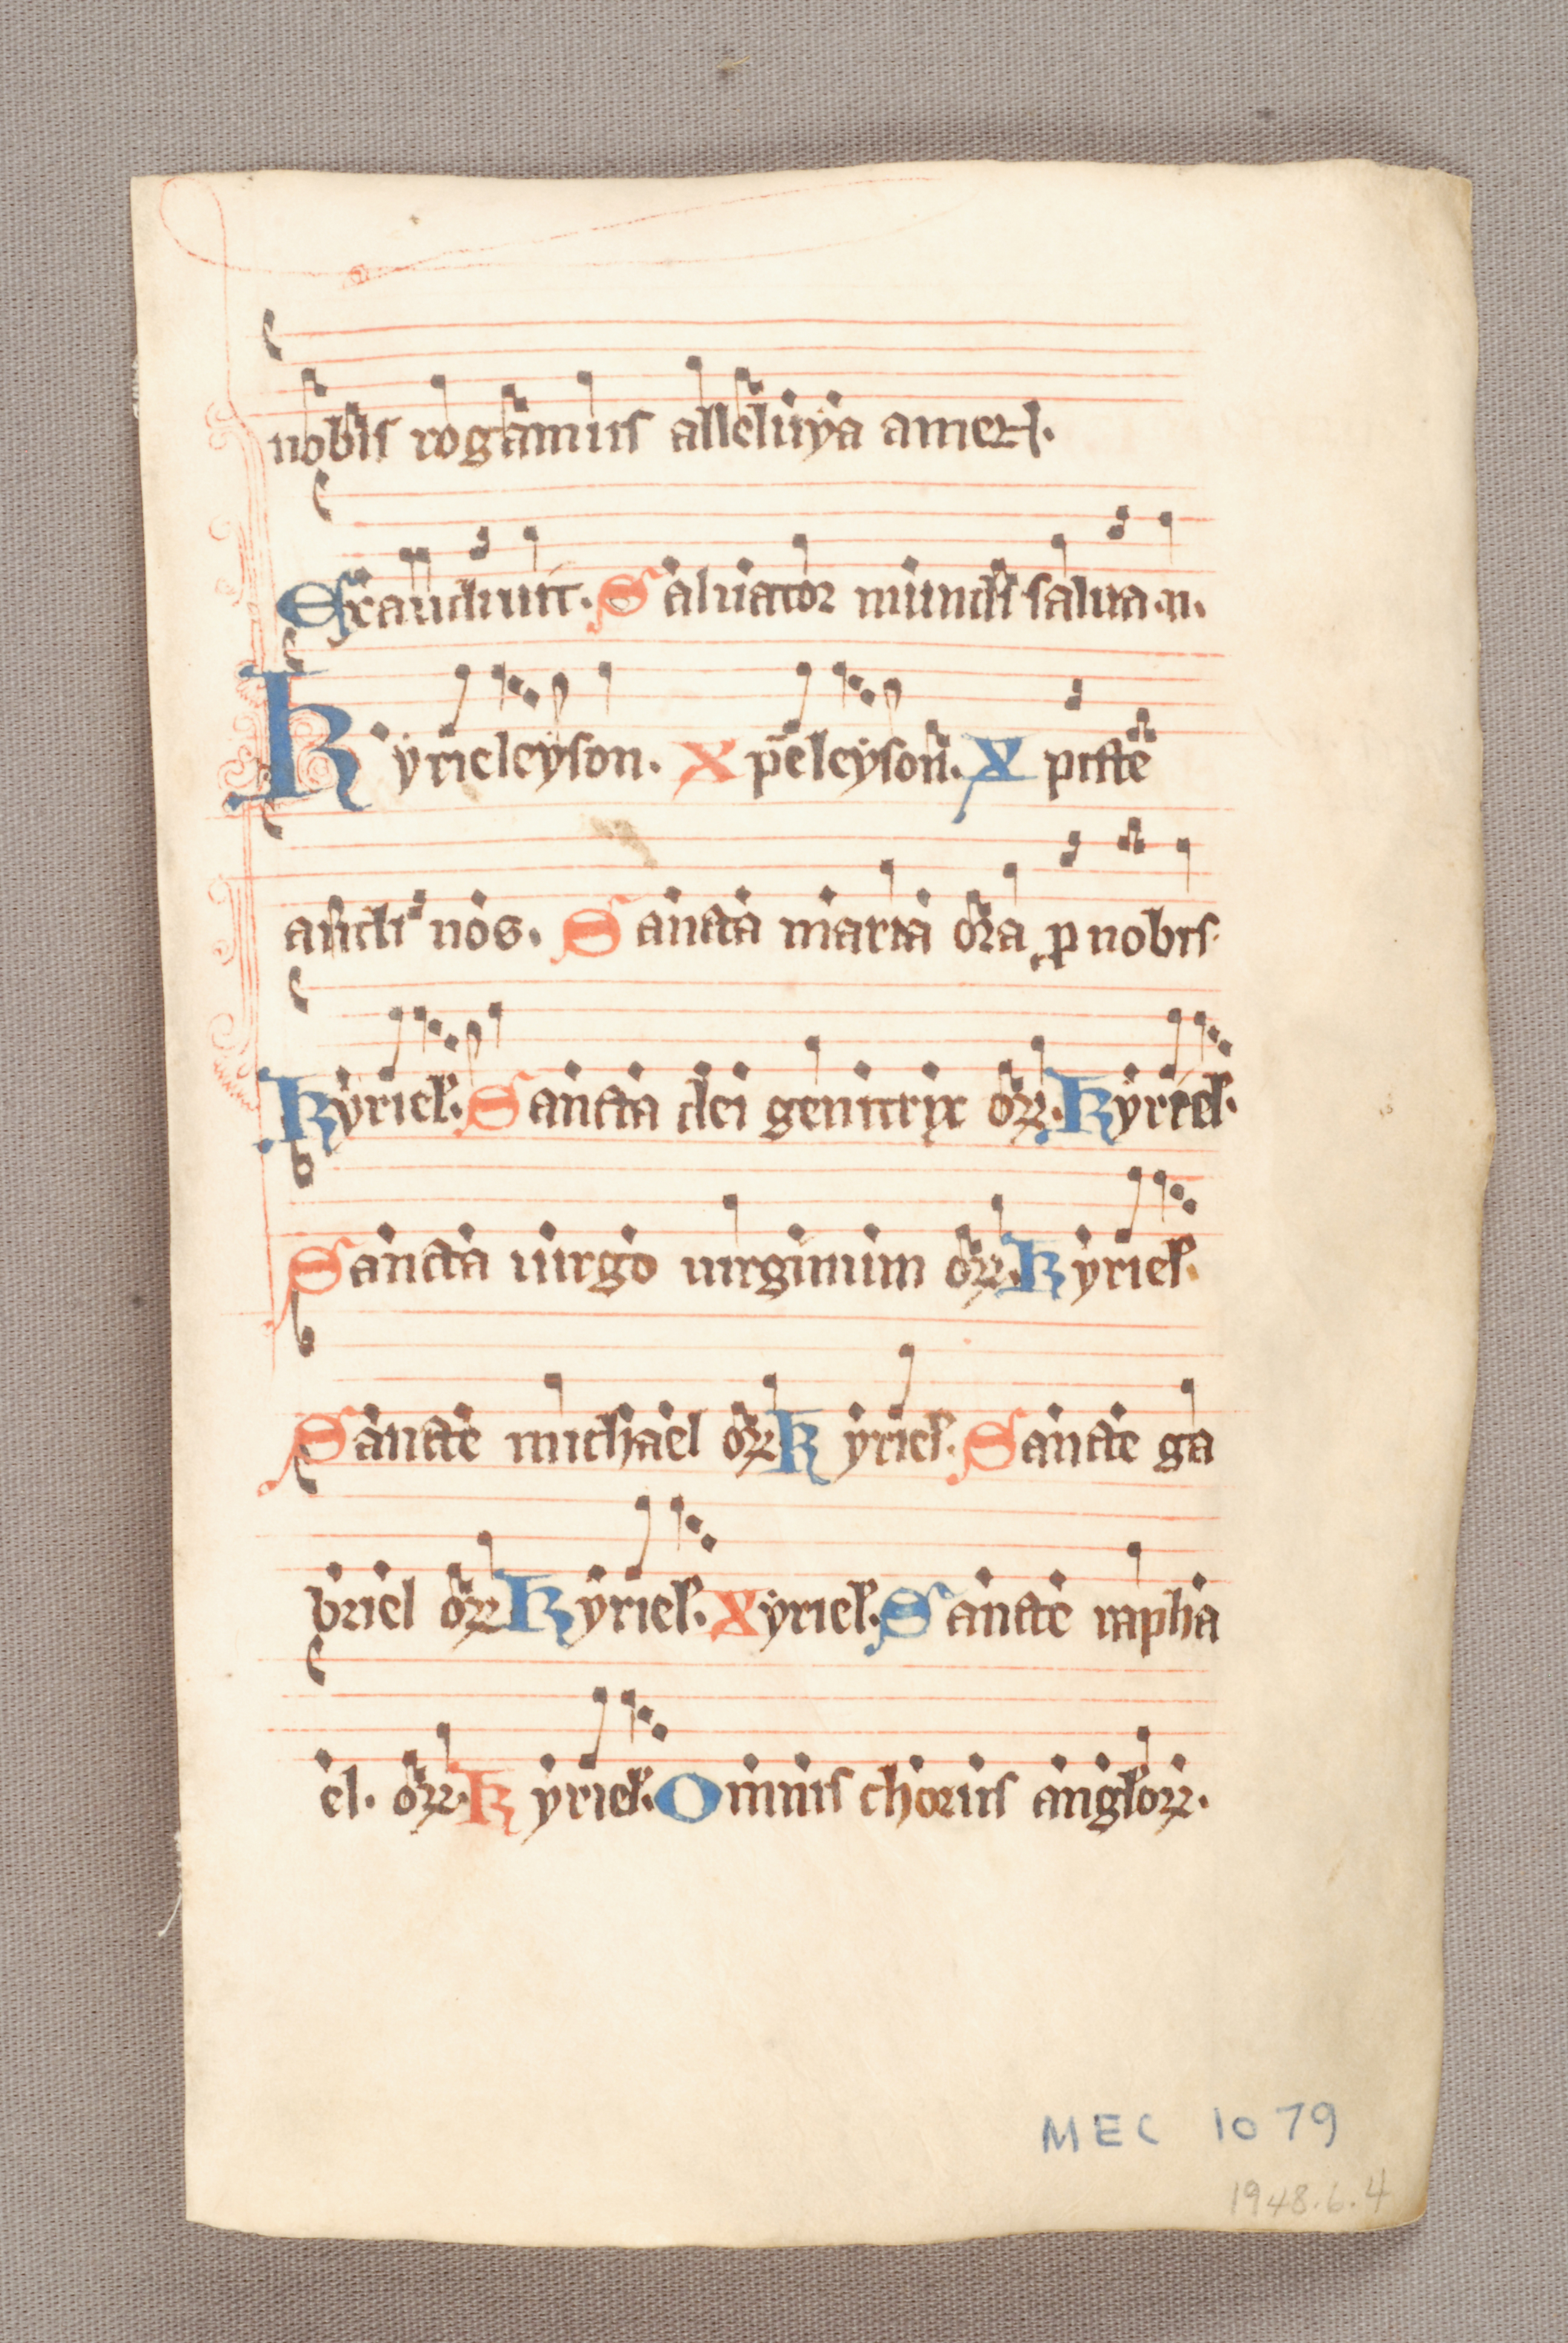 nobis rogamus alleluya amen.
Exaudiuit. Saluator mundi salua. n.
Kyrieleyson. Xpeleyson. Xpiste
audi nos. Sancta maria ora p nobis.
Kyriel. Sancta dei genitrix or. Kyriel.
Sancta uirgo uirginum or. Kyriel.
Sancte michael or Kyriel. Sancte ga
briel or Kyriel. Xyriel. Sancte rapha
el. or. Kyriel. Omnis chorus anglor.
MEC 1079
1948.6.4